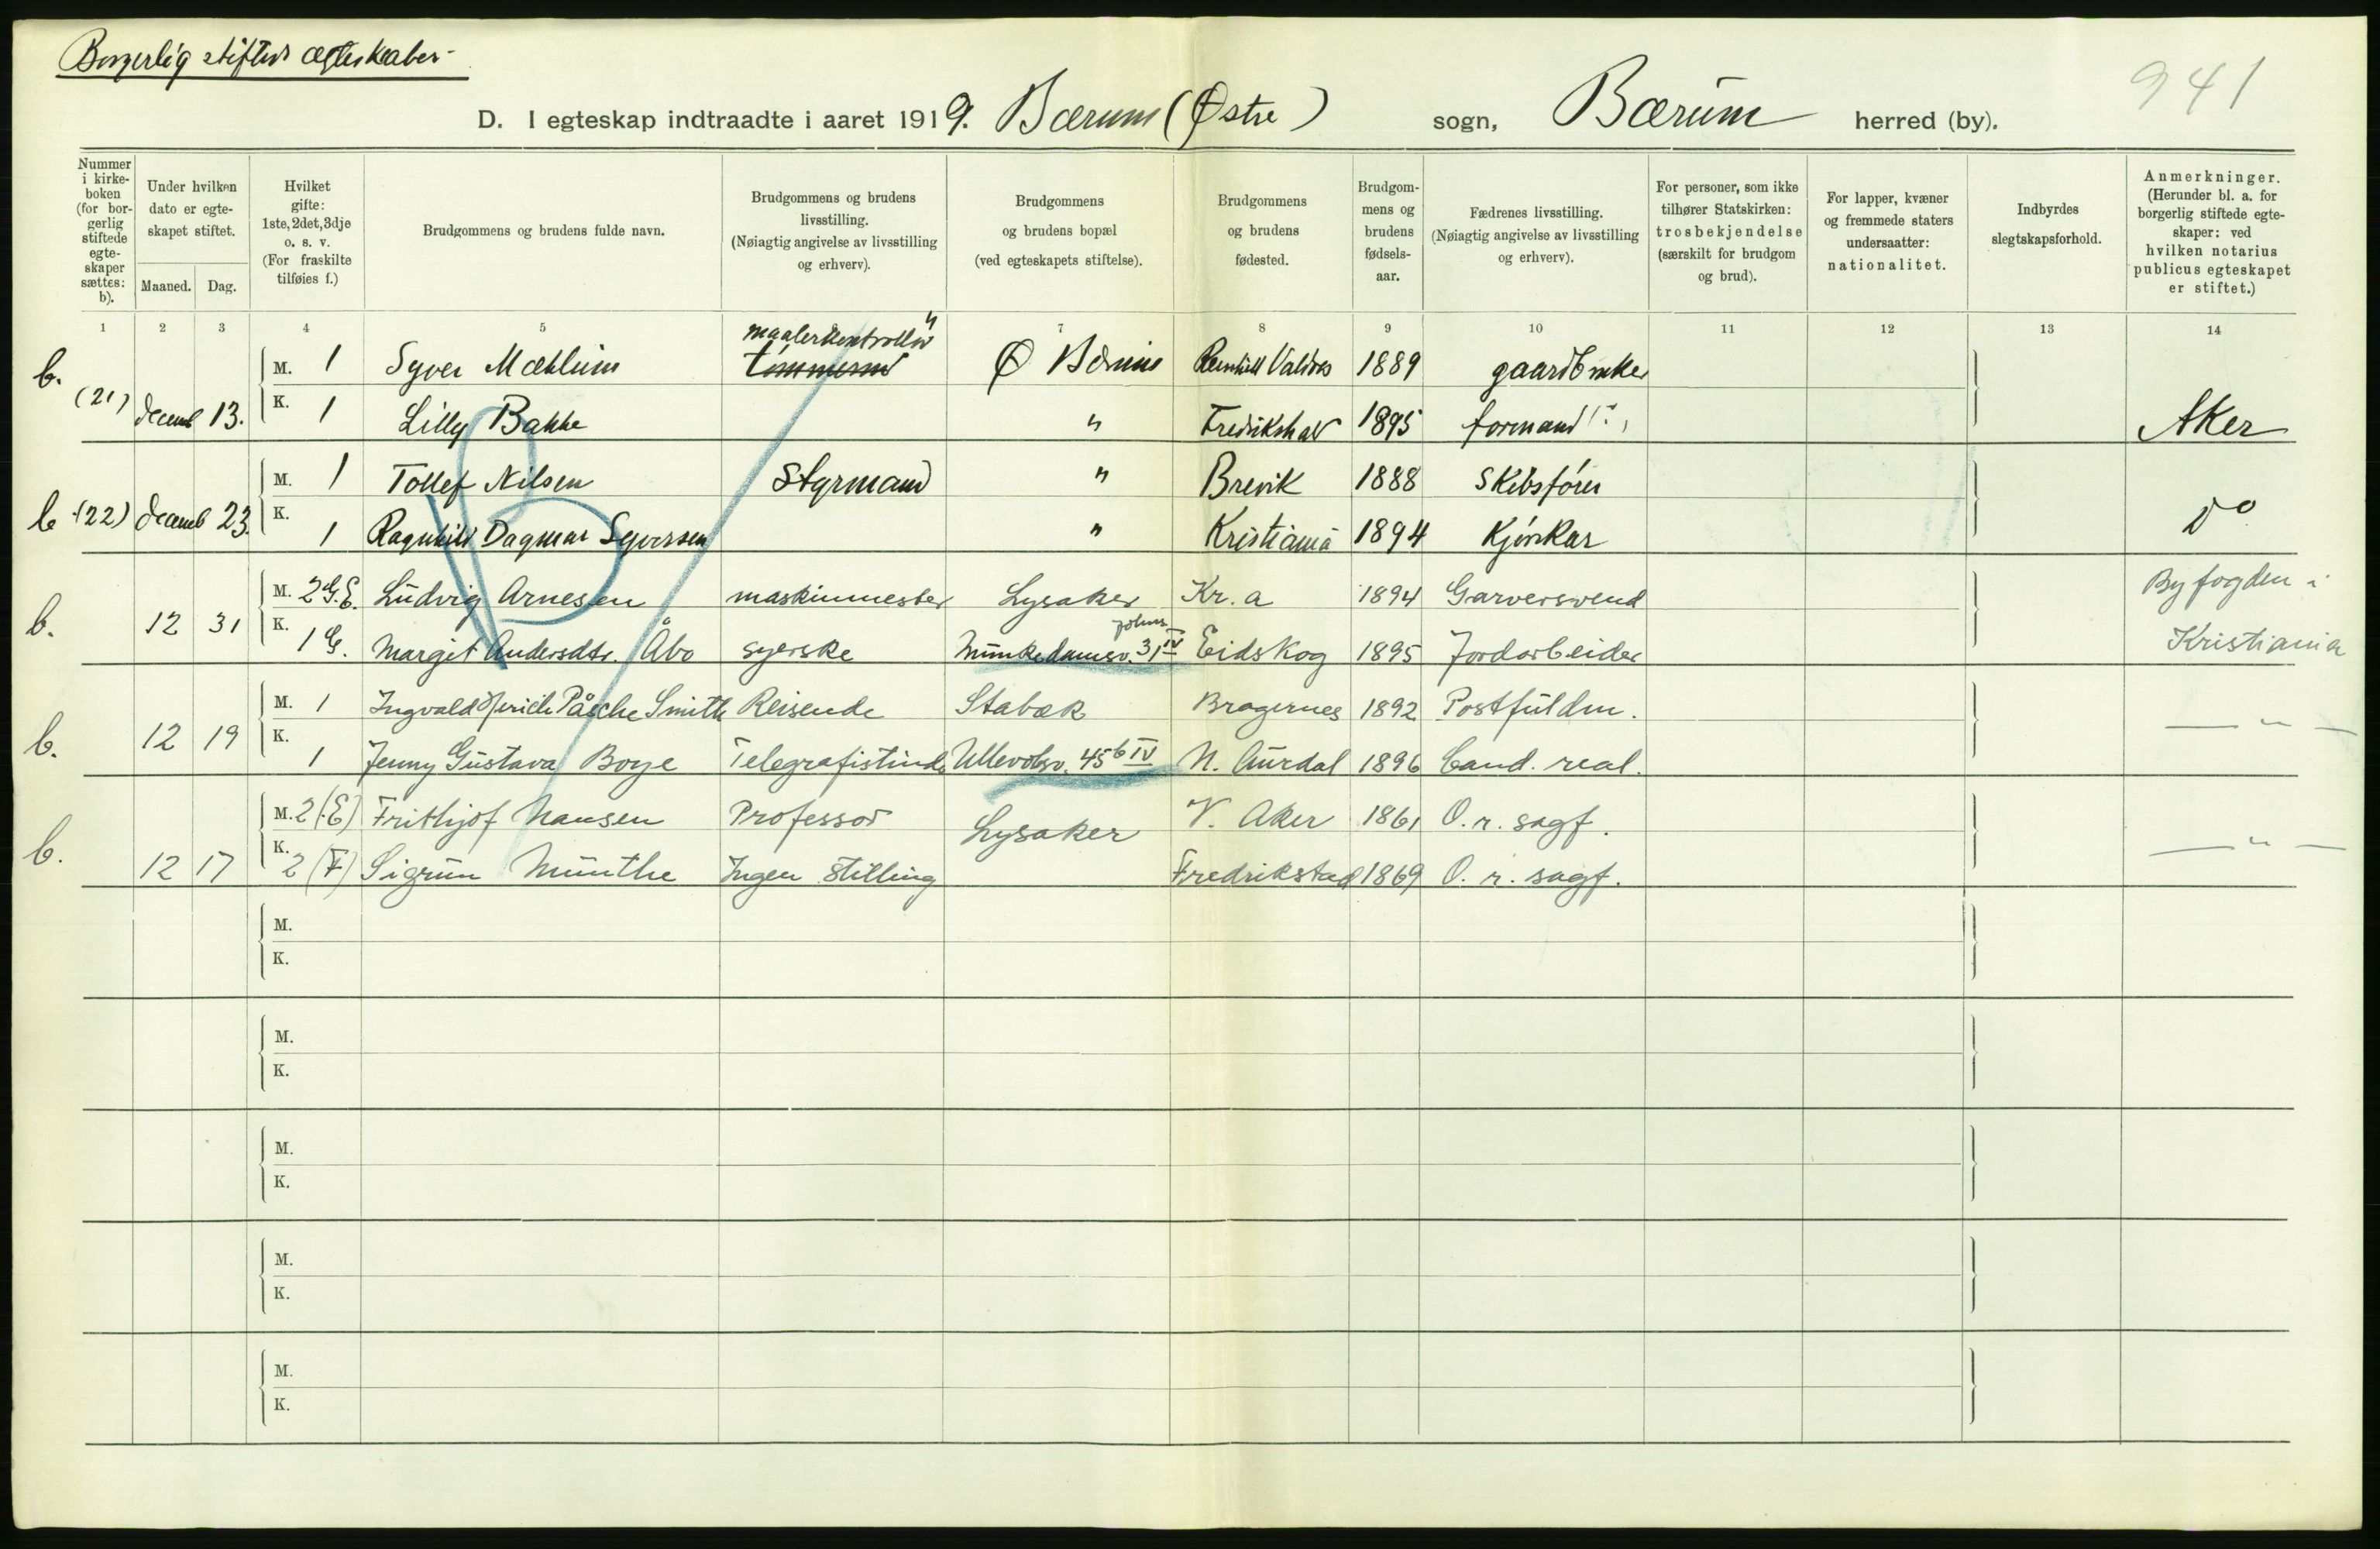 Borgerlig stiftede ægteskaber
941
D. I egteskap indtraadte i aaret 1919. Bærum (Østre) sogn, Bærum herred (by).
Nummer i kirke-boken (for bor-gerlig stiftede egte-skaper sættes: b).
Under hvilken dato er egte-skapet stiftet.
Maaned. Dag.
Hvilket gifte: 1ste, 2det, 3dje o. s. v. (For fraskilte tilføies f.)
Brudgommens og brudens fulde navn.
Brudgommens og brudens livsstilling. (Nøiagtig angivelse av livsstilling og erhverv).
Brudgommens og brudens bopæl (ved egteskapets stiftelse).
Brudgommens og brudens fødested.
Brudgom-mens og brudens fødsels-aar.
Fædrenes livsstilling. (Nøiagtig angivelse av livsstilling og erhverv).
For personer, som ikke tilhører Statskirken: trosbekjendelse (særskilt for brudgom og brud).
For lapper, kvæner og fremmede staters undersaatter: nationalitet.
Indbyrdes slegtskapsforhold.
Anmerkninger. (Herunder bl. a. for borgerlig stiftede egte-skaper: ved hvilken notarius publicus egteskapet er stiftet.)
1 2 3 4 5 7 8 9 10 11 12 13 14
maalerkontrollør
b. M. 1 Syver Mæhlum Ø Bærum Valdres 1889 gaardbruker
(21) decemb 13. K. 1 Lilly Bakke " Fredrikshald 1895 formand Aker
M. 1 Tollef Nilsen Styrmand " Brevik 1888 Skibsfører
b (22) decemb 23. K. 1 Ragnhild Dagmar Syversen " Kristiania 1894 Kjørekar do
M. 2 G.E. Ludvig Arnesen maskinmester Lysaker Kr.a 1894 Garversvend Byfogden i
b. 12 31 K. 1 G. Margit Andersdtr. Åbo syerske Munkedamsv. 31 IV Eidskog 1895 Jordarbeider Kristiania
M. 1 Ingvald Pasche Smith Reisende Stabæk Bragernes 1892 Postfuldm. — " —
b. 12 19 K. 1 Jenny Gustava Boye Telegrafistinde Ullevolsv. 45 b IV N. Aurdal 1896 Cand. real.
M. 2 (E) Frithjof Nansen Professor Lysaker V. Aker 1861 O. r. sagf. — " —
b. 12 17 K. 2 (F) Sigrun Munthe Ingen stilling Fredrikstad 1869 O. r. sagf.
M.
K.
M.
K.
M.
K.
M.
K.
M.
K.